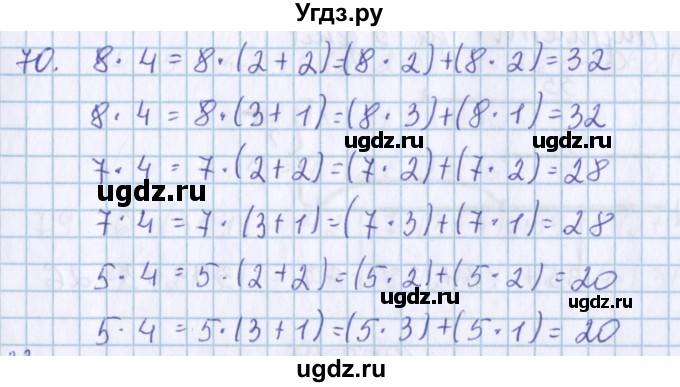 Угдз.ру
70. 8 · 4 = 8 · (2 + 2) = (8 · 2) + (8 · 2) = 32
8 · 4 = 8 · (3 + 1) = (8 · 3) + (8 · 1) = 32
ugdz.ru ugdz.ru
7 · 4 = 7 · (2 + 2) = (7 · 2) + (7 · 2) = 28
ugdz.ru
7 · 4 = 7 · (3 + 1) = (7 · 3) + (7 · 1) = 28
ugdz.ru
5 · 4 = 5 · (2 + 2) = (5 · 2) + (5 · 2) = 20
ugdz.ru
5 · 4 = 5 · (3 + 1) = (5 · 3) + (5 · 1) = 20
ugdz.ru
ugdz.ru